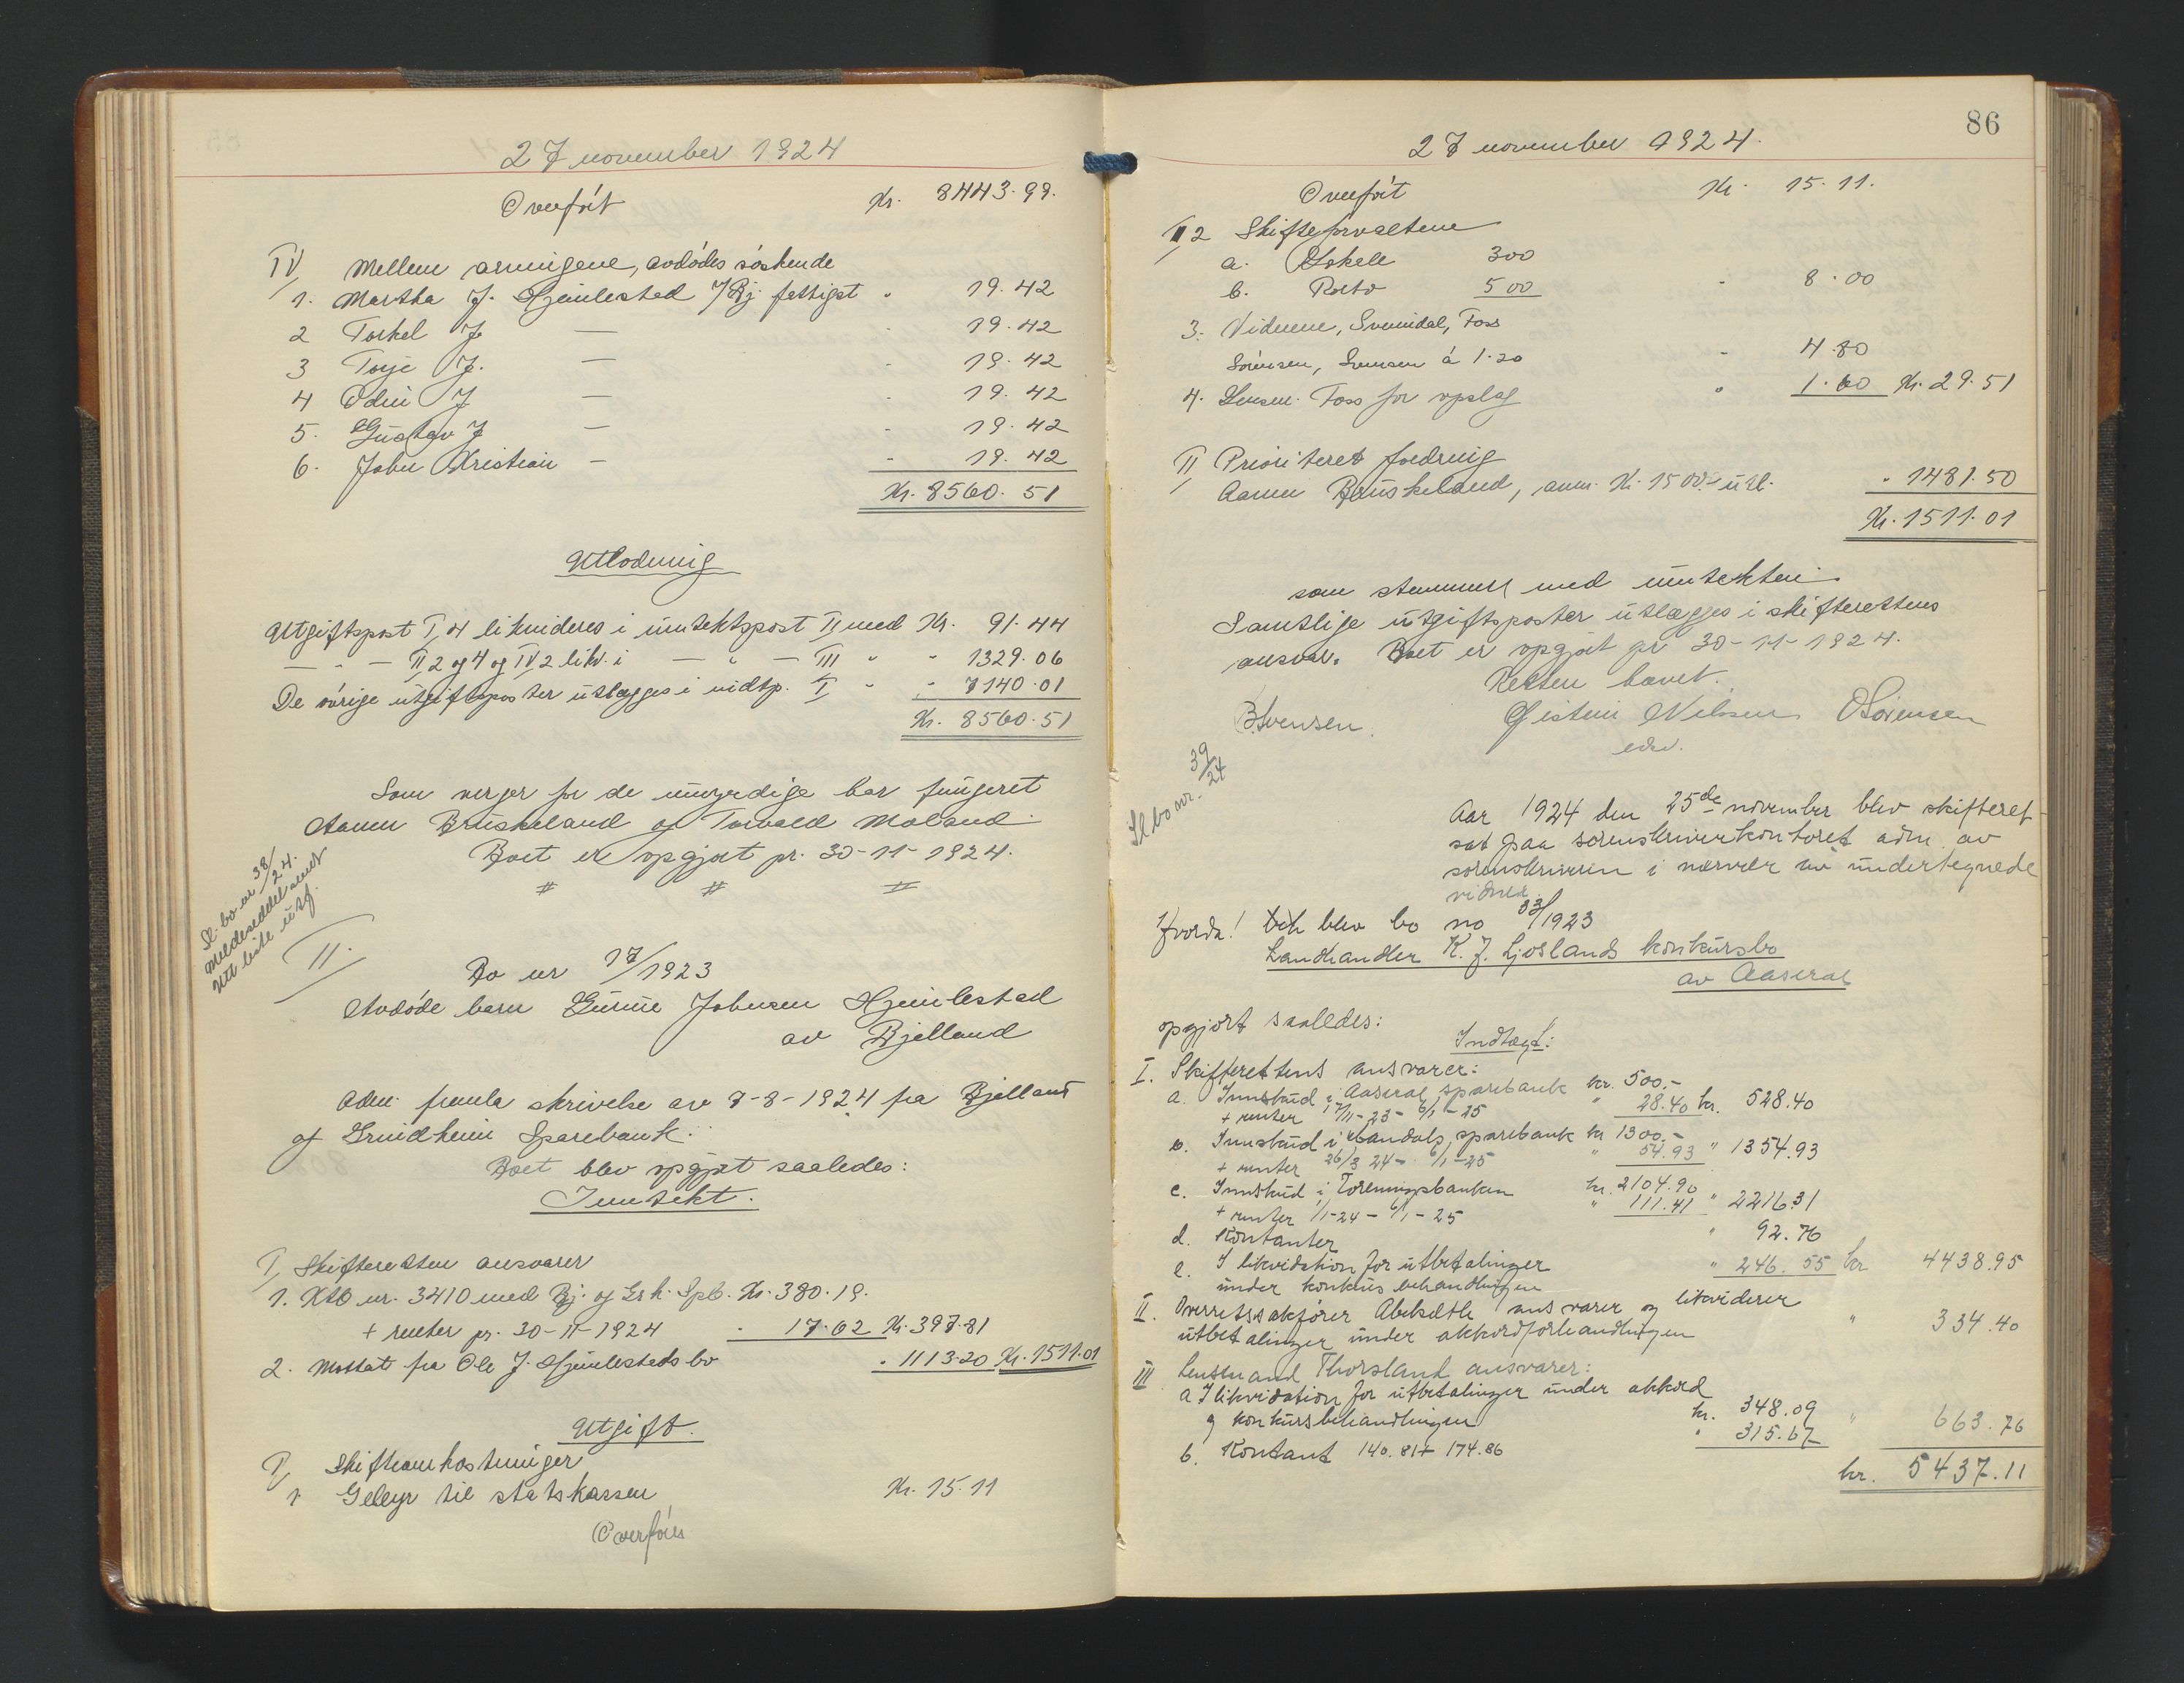 27 november 1924
Overfört Kr. 8443.99.
IV, Mellem arvingene, avdödes söskende
1. Martha J. Hjemlestad / Bj. fattigst " 19.42
2 Torkel J. — " 19.42
3 Terje J. — " 19.42
4 Odin J — " 19.42
5. Gustav J — " 19.42
6. John Kristian — " 19.42
Kr. 8560.51
Utlodning
Utgiftspost I, 4 likvideres i inntektspost II med Kr. 91.44
— " — II 2 og 4 og IV 2 likv. i — " — III " " 1329.06
De övrige utgiftsposter utlægges i indtp. I " " 7140.01
Kr. 8560.51
Som verger for de umyndige har fungeret
Aanen Bruskeland og Torvald Moland.
Boet er opgjort pr. 30-11-1924.
# # =
Sl. bo nr 38/24.
Meldeseddel sendt
Utl liste utg.
II.
Bo nr 17/1923
Avdöde barn Gunnie Johnsen Hjemlestad
av Bjelland
Adm. fremla skrivelse av 7-8-1924 fra Bjelland
og Grindheim Sparebank.
Boet blev opgjort saaledes:
Inntekt.
I, Skifteretten ansvarer
1. Kto nr. 3410 med Bj. og Grh. Spb. Kr. 380.19.
+ renter pr. 30-11-1924 " 17.62 Kr. 397.81
2. Mottat fra Ole J. Hjemlesteds bo " 1113.20 Kr. 1511.01
Utgift.
I, Skifteomkostninger
1 Gebyr til statskassen Kr. 15.11
Overföres
86
27 november 1924.
Overfört Kr. 15.11.
I 2 Skifteforvalteren
a. Lokale 300
b. Porto 500 " 8.00
3. Vidnene, Svenndal, Foss
Sörensen, Svensen á 1.20 " 4.80
4. Lensm. Foss for opslag " 1.60 Kr. 29.51
II Prioriteret fordring
Aanen Bruskeland, anm. Kr. 1500.- utl. " 1481.50
Kr. 1511.01
som stemmer med inntekten.
Samtlige utgiftsposter utlægges i skifterettens
ansvar. Boet er opgjort pr 30-11-1924.
Retten hævet.
B. Svensen. Øistein Nilssen OSörensen
edsv.
Sl bo nr. 39/24
Aar 1924 den 25de november blev skifteret
sat paa sorenskriverkontoret adm. av
sorenskriveren i nærvær av undertegnede
vidner.
Hvorda! Och blev bo no 33/1923
Landhandler K. J. Ljoslands konkursbo
av Aaseral
opgjort saaledes:
Indtægt:
I. Skifterettens ansvarer:
a. Innskud i Aaseral sparebank kr. 500.-
+ renter 17/11-23 - 6/1-25 " 28.40 kr. 528.40
b. Innskud i Mandals sparebank kr 1300.-
+ renter 26/3 24 - 6/1-25 " 54.93 " 1354.93
c. Innskud i Foreningsbanken kr. 2104.90
+ renter 1/1-24 - 6/1-25 " 111.41 " 2216.31
d. Kontanter " 92.76
e. I likvidation for utbetalinger
under konkursbehandlingen " 246.55 kr 4438.95
II. Overretssakförer Abelsæth ansvarer og likviderer
utbetalinger under akkordforhandlingen " 334.40
III Lensmand Thorsland ansvarer:
a I likvidation for utbetalinger under akkord
og konkursbehandlingen kr. 348.09
b. Kontant 140.81 + 174.86 " 315.67 " 663.76
kr. 5437.11